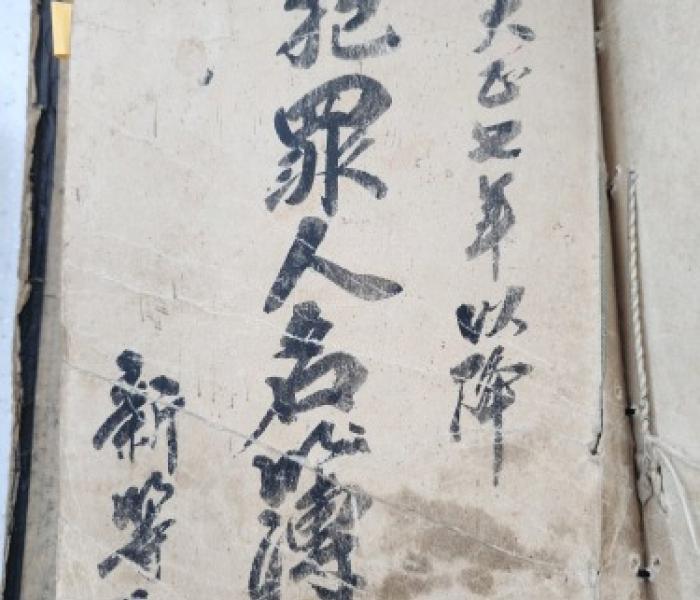 大正四年以降
犯罪人名簿
新